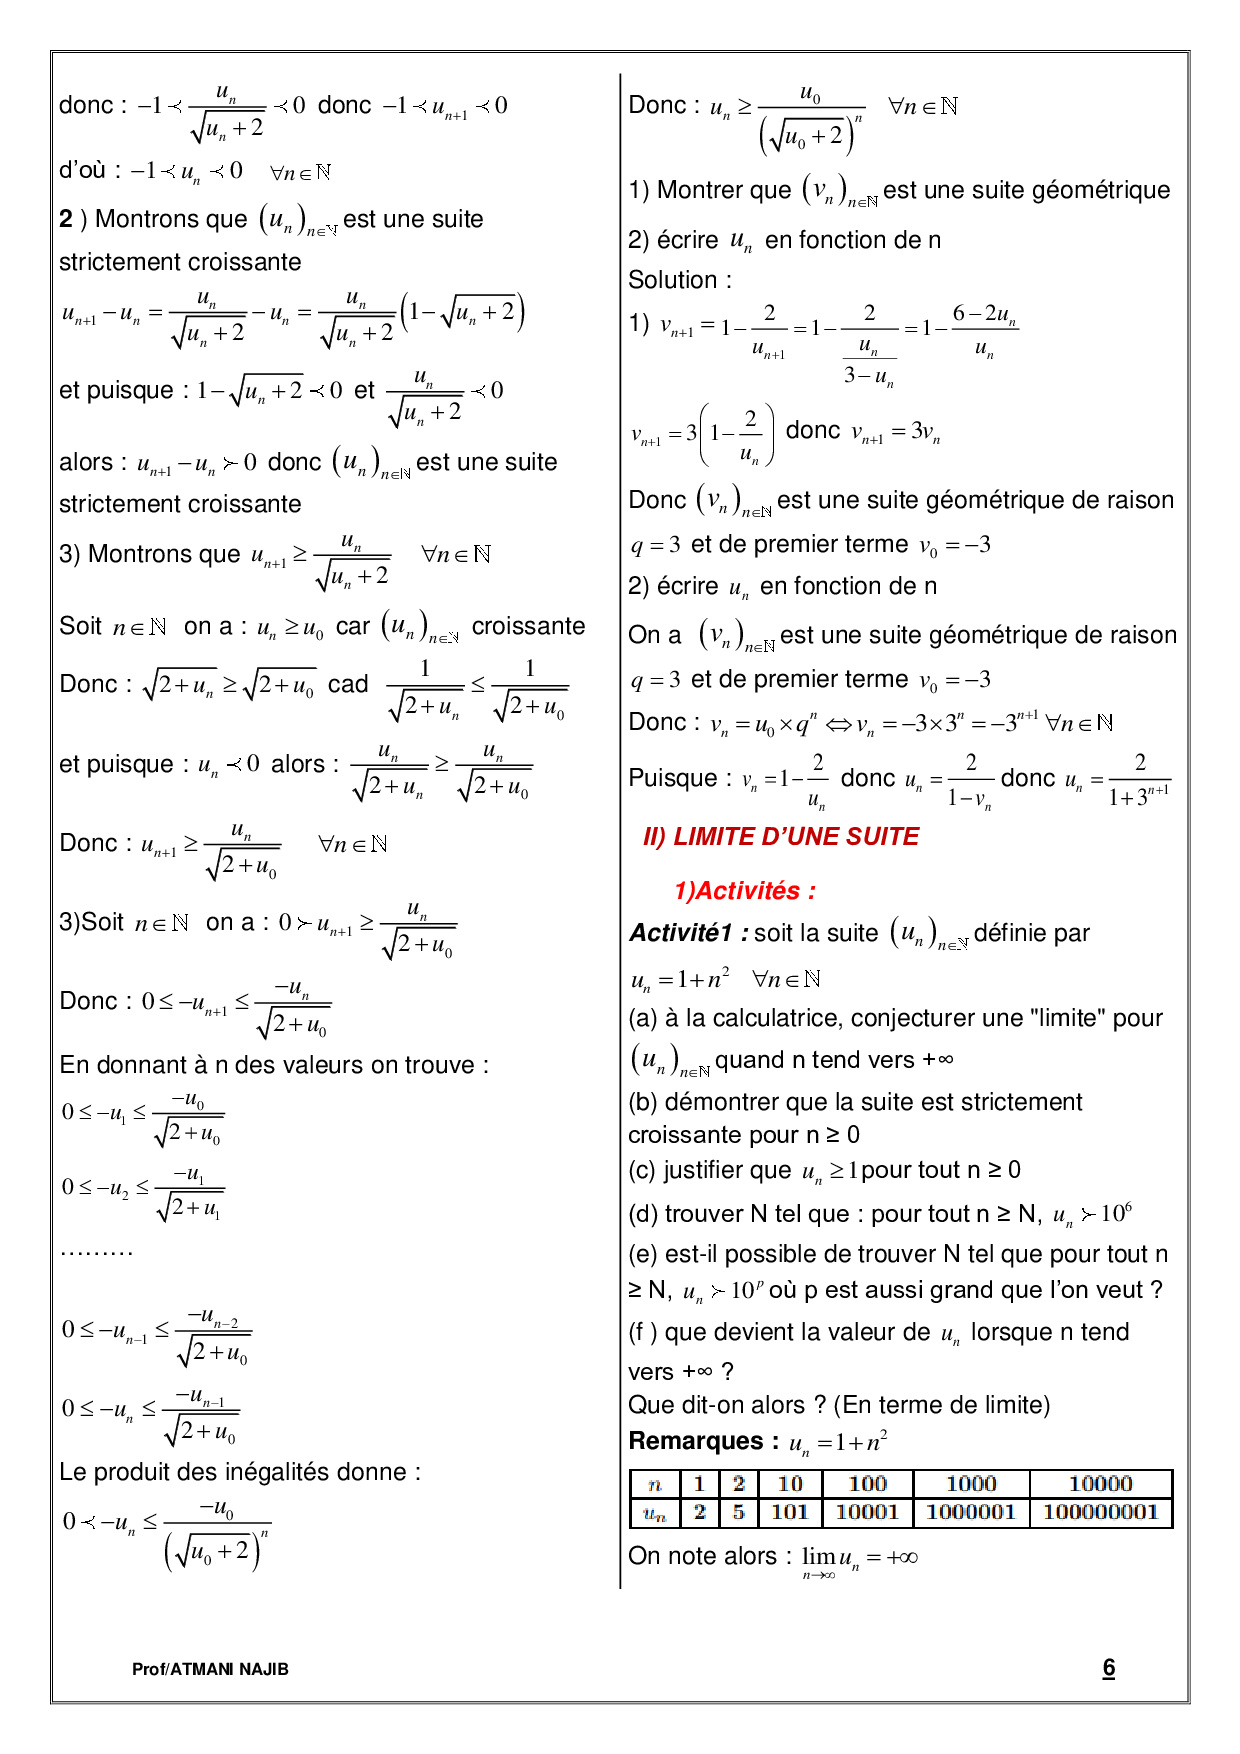 donc : −1 ≺ u_n / √(u_n + 2) ≺ 0 donc −1 ≺ u_{n+1} ≺ 0
d’où : −1 ≺ u_n ≺ 0 ∀n ∈ ℕ
2 ) Montrons que (u_n)_{n∈ℕ} est une suite
strictement croissante
u_{n+1} − u_n = u_n / √(u_n + 2) − u_n = u_n / √(u_n + 2) (1 − √(u_n + 2))
et puisque : 1 − √(u_n + 2) ≺ 0 et u_n / √(u_n + 2) ≺ 0
alors : u_{n+1} − u_n ≻ 0 donc (u_n)_{n∈ℕ} est une suite
strictement croissante
3) Montrons que u_{n+1} ≥ u_n / √(u_n + 2) ∀n ∈ ℕ
Soit n ∈ ℕ on a : u_n ≥ u_0 car (u_n)_{n∈ℕ} croissante
Donc : √(2 + u_n) ≥ √(2 + u_0) cad 1 / √(2 + u_n) ≤ 1 / √(2 + u_0)
et puisque : u_n ≺ 0 alors : u_n / √(2 + u_n) ≥ u_n / √(2 + u_0)
Donc : u_{n+1} ≥ u_n / √(2 + u_0) ∀n ∈ ℕ
3)Soit n ∈ ℕ on a : 0 ≻ u_{n+1} ≥ u_n / √(2 + u_0)
Donc : 0 ≤ −u_{n+1} ≤ −u_n / √(2 + u_0)
En donnant à n des valeurs on trouve :
0 ≤ −u_1 ≤ −u_0 / √(2 + u_0)
0 ≤ −u_2 ≤ −u_1 / √(2 + u_1)
………
0 ≤ −u_{n−1} ≤ −u_{n−2} / √(2 + u_0)
0 ≤ −u_n ≤ −u_{n−1} / √(2 + u_0)
Le produit des inégalités donne :
0 ≺ −u_n ≤ −u_0 / (√(u_0 + 2))^n
Donc : u_n ≥ u_0 / (√(u_0 + 2))^n ∀n ∈ ℕ
1) Montrer que (v_n)_{n∈ℕ} est une suite géométrique
2) écrire u_n en fonction de n
Solution :
1) v_{n+1} = 1 − 2 / u_{n+1} = 1 − 2 / (u_n / (3 − u_n)) = 1 − (6 − 2u_n) / u_n
v_{n+1} = 3(1 − 2 / u_n) donc v_{n+1} = 3v_n
Donc (v_n)_{n∈ℕ} est une suite géométrique de raison
q = 3 et de premier terme v_0 = −3
2) écrire u_n en fonction de n
On a (v_n)_{n∈ℕ} est une suite géométrique de raison
q = 3 et de premier terme v_0 = −3
Donc : v_n = u_0 × q^n ⇔ v_n = −3 × 3^n = −3^{n+1} ∀n ∈ ℕ
Puisque : v_n = 1 − 2 / u_n donc u_n = 2 / (1 − v_n) donc u_n = 2 / (1 + 3^{n+1})
II) LIMITE D’UNE SUITE
1)Activités :
Activité1 : soit la suite (u_n)_{n∈ℕ} définie par
u_n = 1 + n² ∀n ∈ ℕ
(a) à la calculatrice, conjecturer une "limite" pour
(u_n)_{n∈ℕ} quand n tend vers +∞
(b) démontrer que la suite est strictement
croissante pour n ≥ 0
(c) justifier que u_n ≥ 1 pour tout n ≥ 0
(d) trouver N tel que : pour tout n ≥ N, u_n ≻ 10⁶
(e) est-il possible de trouver N tel que pour tout n
≥ N, u_n ≻ 10^p où p est aussi grand que l’on veut ?
(f ) que devient la valeur de u_n lorsque n tend
vers +∞ ?
Que dit-on alors ? (En terme de limite)
Remarques : u_n = 1 + n²
n 1 2 10 100 1000 10000
u_n 2 5 101 10001 1000001 100000001
On note alors : lim_{n→∞} u_n = +∞
Prof/ATMANI NAJIB 6